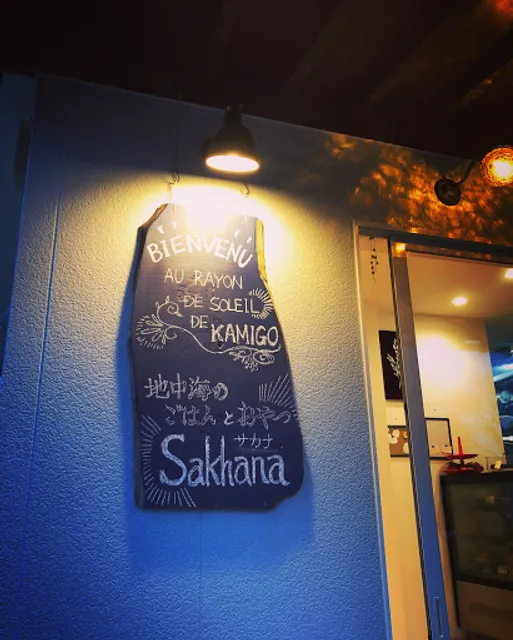 BIENVENU
AU RAYON
DE SOLEIL
DE KAMIGO
地中海の
ごはんとおやつ
サカナ
Sakhana